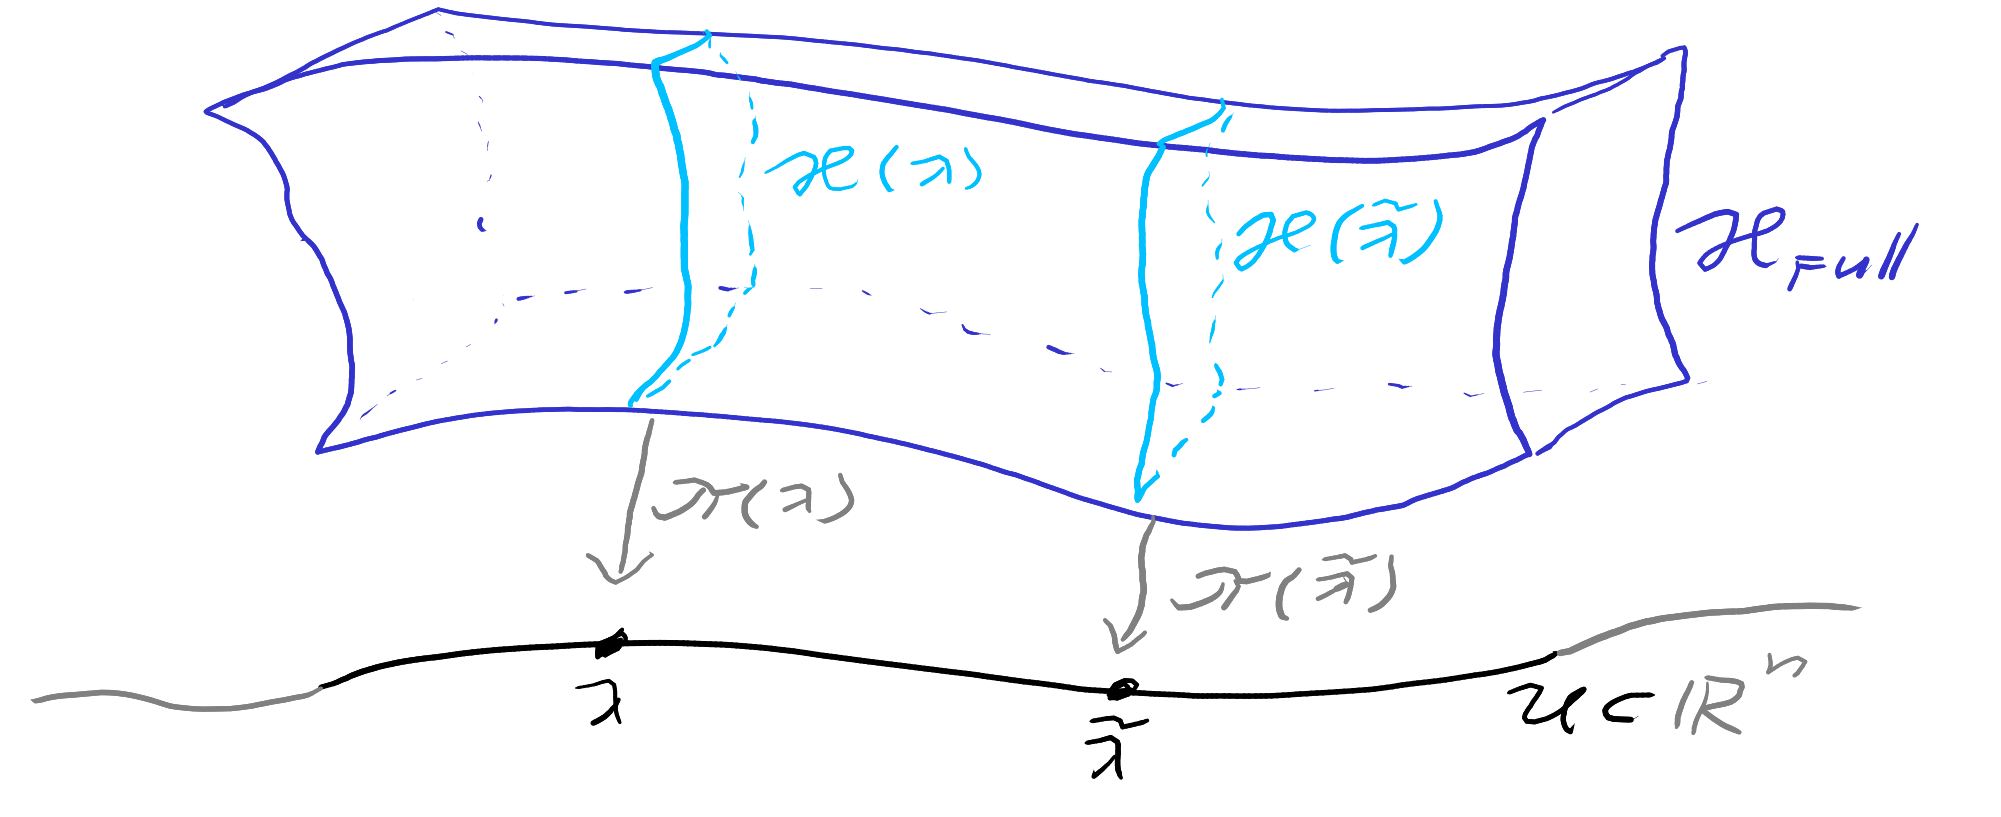 ℋ(λ)
ℋ(λ̃)
ℋ_Full
π(λ)
π(λ̃)
λ
λ̃
𝒰 ⊂ ℝⁿ